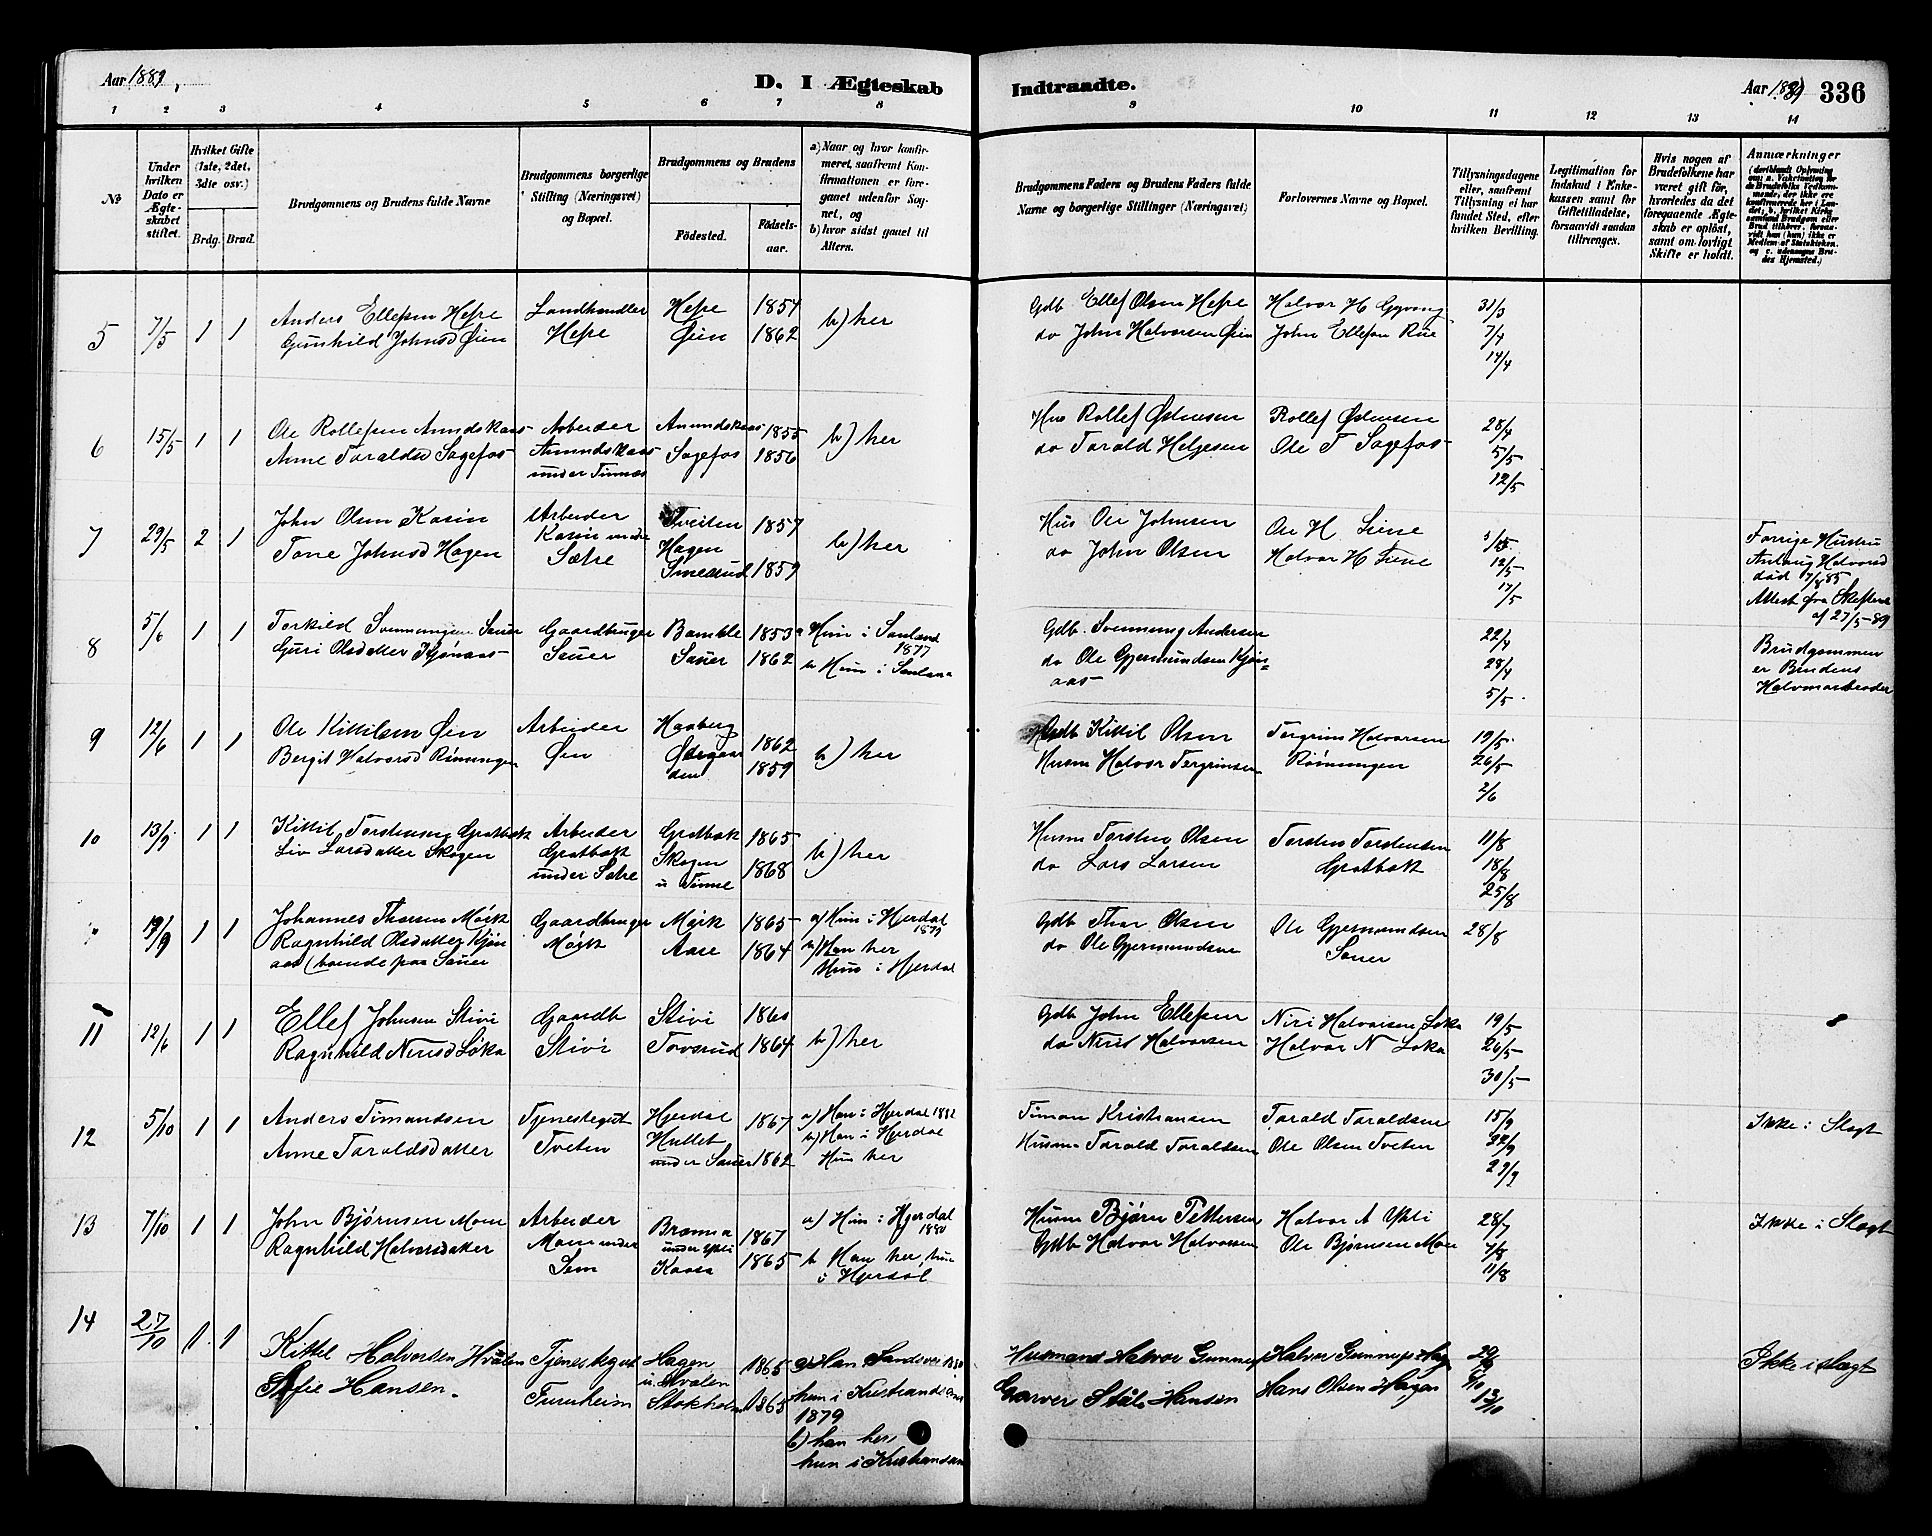 Aar 1889.
D. I Ægteskab Indtraadte.
Aar 1889 336
1 2 3 4 5 6 7 8 9 10 11 12 13 14
№
Under hvilken Dato er Ægteskabet stiftet.
Hvilket Gifte (1ste, 2det, 3die osv.)
Brdg. Brud.
Brudgommens og Brudens fulde Navne
Brudgommens borgerlige Stilling (Næringsvei) og Bopæl.
Brudgommens og Brudens
Fødested. Fødselsaar.
a) Naar og hvor konfirmeret, saafremt Konfirmationen er foregaaet udenfor Sognet, og
b) hvor sidst gaaet til Alters.
Brudgommens Faders og Brudens Faders fulde Navne og borgerlige Stillinger (Næringsvei)
Forlovernes Navne og Bopæl.
Tillysningsdagene eller, saafremt Tillysning ei har fundet Sted, efter hvilken Bevilling.
Legitimation for Indskud i Enkekassen samt for Giftetilladelse, forsaavidt saadan tiltrænges.
Hvis nogen af Brudefolkene har været gift før, hvorledes da det foregaaende Ægteskab er opløst, samt om lovligt Skifte er holdt.
Anmærkninger
5 7/5 1 1 Anders Ellefsen Hefre Landhandler Hefre 1854 b) her Gdb Ellef Olsen Hefre Halvor H Gyvning 31/3
Gunhild Johnsd Øien Hefre Øien 1862 do John Halvorsen Øien John Ellefsen Rue 7/4
14/4
6 15/5 1 1 Ole Rollefsen Amundskaas Arbeider Amundskaas 1855 b) her Hus Rollef Østensen Rollef Østensen 28/4
Anne Taraldsd Sagefos Amundskaas Sagefos 1856 do Tarald Helgesen Ole T Sagefos 5/5
under Tinnes 12/5
7 29/5 2 1 John Olsen Kasin Arbeider Tveiten 1857 b) her Hus Ole Johnsen Ole H Lene 5/5 Forrige Hustru
Tone Johnsd Hagen Kasin under Hagen do John Olsen Halvor H Lene 12/5 Aslaug Halvorsd
Sætre Smedsrud 1859 17/5 død 7/8 85
Attest fra Skifteret
af 27/5-89
8 5/6 1 1 Torkild Svenningsen Sauer Gaardbruger Bamble 1853 a Hun i Sauland Gdb. Svenning Andersen 22/4 Brudgommen
Guri Olsdatter Kjønaas Sauer Sauer 1862 1877 do Ole Gjermundsen Kjøn- 28/4 er Brudens
b Hun i Sauland aas 5/5 Halvmorbroder
9 12/6 1 1 Ole Kittilsen Øen Arbeider Haaberg 1862 b) her Gdb Kittil Olsen Tergrim Halvorsen 19/5
Bergit Halvorsd Rønningen Øen 1859 Husm Halvor Tergrimsen Rønningen 26/5
2/6
10 13/9 1 1 Kittil Torstensen Grotbæk Arbeider Grotbæk 1865 b) her Husm Torsten Olsen Torsten Torstensen 11/8
Liv Larsdatter Skogen Grotbæk Skogen 1868 do Lars Larsen Grotbæk 18/8
under Sætre u Tinne 25/8
" 19/9 1 1 Johannes Thorsen Mørk Gaardbruger Mørk 1865 a) Hun i Hjerdal Gdb Thor Olsen Ole Gjermundsen 28/8
Ragnhild Olsdatter Kjøn Mørk Aase 1864 1879 do Ole Gjermundsen Sauer
aas (boende paa Sauer b) Han her
Hun i Hjerdal
11 12/6 1 1 Ellef Johnsen Stivi Gaardb Stivi 1860 b) her Gdb John Ellefsen Niri Halvorsen Løka 19/5
Ragnhild Nirisd Løka Stivi Toverud 1864 do Niri Halvorsen Halvor N Løka 26/5
30/5
12 5/10 1 1 Anders Timandsen Tjenestegut Hjerdal 1867 a) Han i Hjerdal 1882 Timan Kristiansen Tarald Taraldsen 15/9 Ikke i Slægt
Anne Taraldsdatter Tveten Hullet b) Han i Hjerdal Husm Tarald Taraldsen Ole Olsen Tveten 22/9
under Sauer 1862 Hun her 29/9
13 7/10 1 1 John Bjørnsen Moen Arbeider 1867 a) Hun i Hjerdal Husm Bjørn Pettersen Halvor A Ykli 28/7 Ikke i Slægt
Ragnhild Halvorsdatter Moen under under Ykli 1880 Gdb Halvor Halvorsen Ole Bjørnsen Moen 4/8
Sem Kaasa 1865 b Han her, hun 11/8
i Hjerdal
14 27/10 1 1 Kittel Halvorsen Hvalen Tjenestegut Hagen 1865 a) Han Husmand Halvor Gunnufs. Halvor Gunnufs. Hagen 29/9 Ikke i slægt
Sofie Hansen. Furuheim u. Hvalen hun i Kristiansand Garver Ståle Hansen Hans Olsen Hagen 6/10
Stokholm 1865 1879 13/10
b) han her
hun i Kristiansand